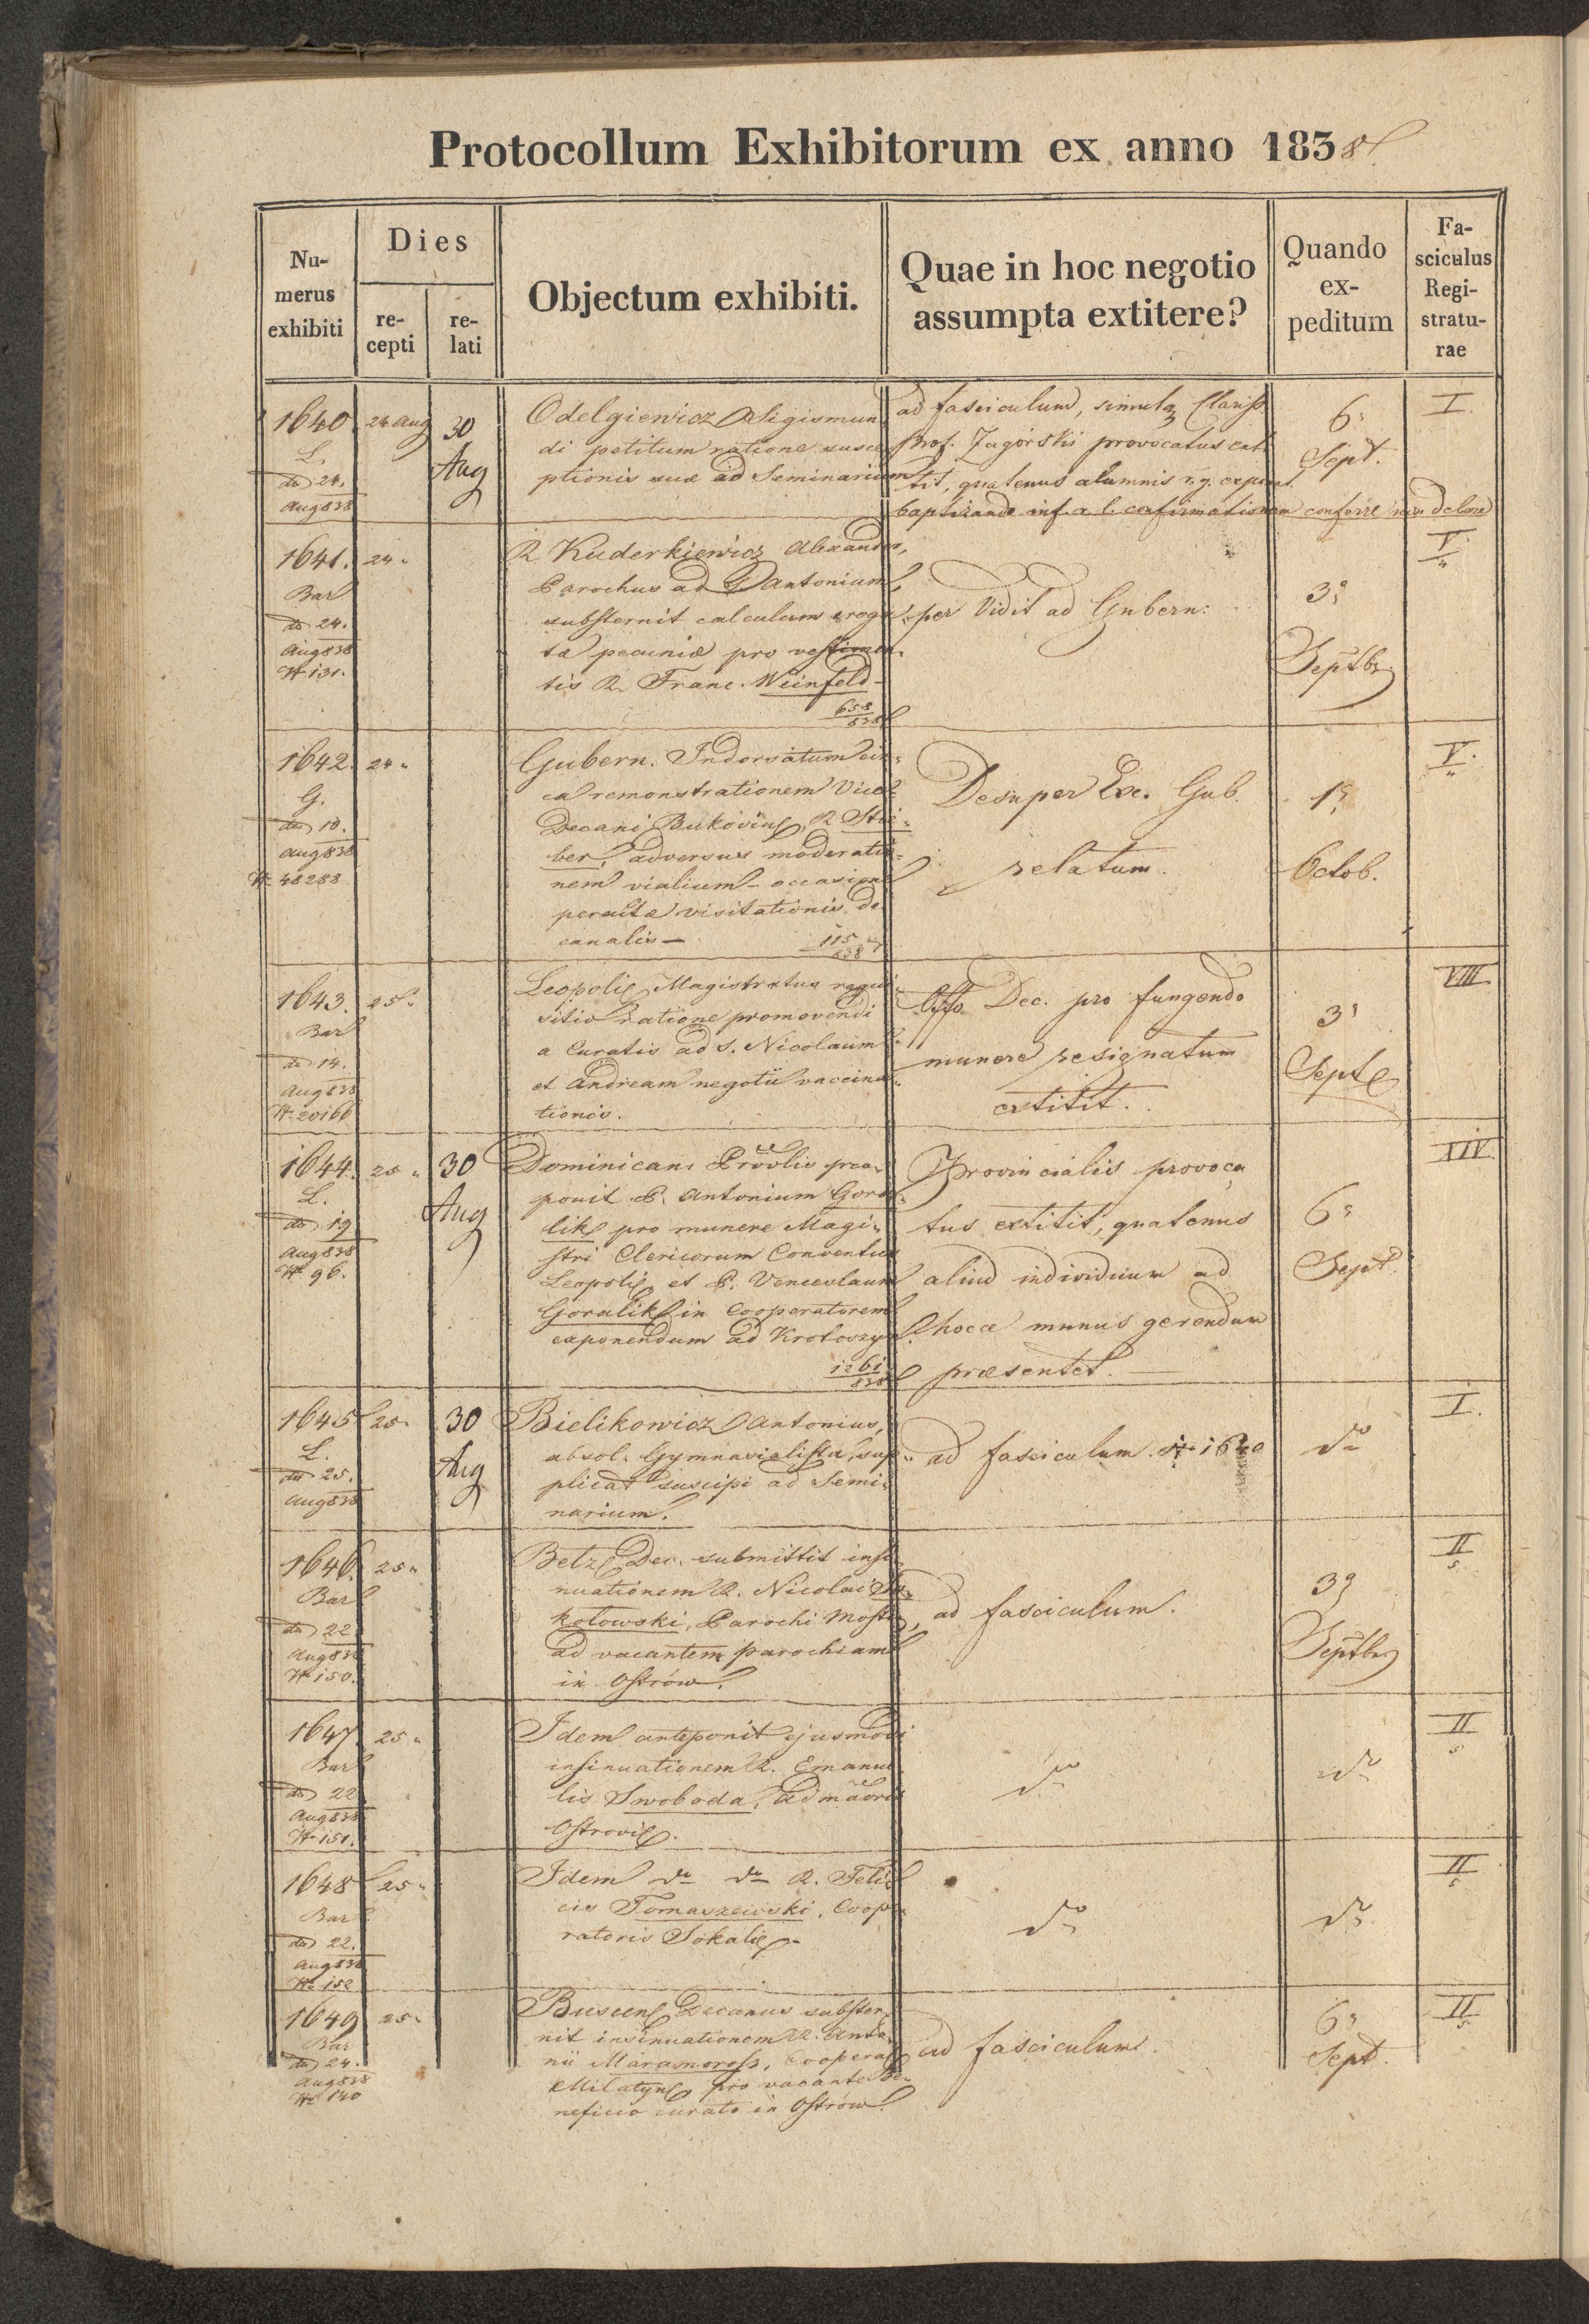 Protocollum Exhibitorum ex anno 1838
Numerus exhibiti
Dies
recepti
relati
Objectum exhibiti.
Quae in hoc negotio assumpta extitere?
Quando expeditum
Fasciculus Registraturae
1640.
L.
do 24.
Aug 838
24 Aug
30
Aug
Odelgiewicz Sigismun
di petitum ratione susce
ptionis suæ ad Seminarium
ad fasciculum, simulq Clariss
Prof. Jagórski provocatus exti
tit, quatenus alumnis r. g.
baptizando inf. a. l. confirmationem conferre
6a
Sept.
I.
1641.
Bar
do 24.
Aug 838
N. 131.
24 "
R. Kuderkiewicz Alexander,
Parochus ad S. Antonium
substernit calculum eroga
tæ pecuniæ pro vestimen
tis R. Franc. Weinfeld
658
838
per Vidit ad Gubern:
3a
Septbr
V.
1642.
G.
do 10.
Aug 838
N. 48288
24 "
Gubern. Indorsatum cir
ca remonstrationem Vice
Decani Bukovin, R. Stie
ber, adversus moderatio
nem vialium occasione
peractæ visitationis de
canalis
115
838
Desuper Exc. Gub.
relatum.
1a
Octob.
V.
1643.
Bar
do 14.
Aug 838
N. 20166
25 "
Leopolis Magistratus requi
sitio ratione promovendi
a Curatis ad S. Nicolaum
et Andream negotii vaccina
tionis.
Offo Dec. pro fungendo
munere resignatum
extitit.
3a
Sept
VIII
1644.
L.
do 19
Aug 838
N. 96.
25 "
30
Aug
Dominican. Provlis pro
ponit P. Antonium Gora
lik pro munere Magi
stri Clericorum Conventus
Leopolis et P. Venceslaum
Goralik in Cooperatorem
exponendum ad Krotoszyn
1261
838
Provincialis provoca
tus extitit, quatenus
aliud individuum ad
hocce munus gerendum
præsentet.
6a
Sept
XIV
1645
L.
do 25.
Aug 838
25 "
30
Aug
Bielikowicz Antonius,
absol. Gymnasialista, sup
plicat suscipi ad Semi
narium.
ad fasciculum N. 1640
do
I.
1646.
Bar
do 22
Aug 838
N. 150.
25 "
Betz Dec. submittit insi
nuationem R. Nicolai So
kołowski, Parochi Mosty,
ad vacantem parochiam
in Ostrów.
ad fasciculum.
3a
Septbr
II
5
1647
Bar
do 22
Aug 838
N. 151.
25 "
Idem anteponit ejusmodi
insinuationem R. Emanue
lis Swoboda, Admāoris
Ostrovi.
do
do
II
5
1648
Bar
do 22.
Aug 838
N. 152
25 "
Idem do do R. Feli
cis Tomaszewski, Coope
ratoris Sokali
do
do
II
5
1649
Bar
do 24.
Aug 838
N. 140
25 "
Buscens Decanus subster
nit insinuationem R. Anto
nii Maramoross, Cooperat
Milatyn, pro vacante Be
neficio curato in Ostrów.
ad fasciculum.
6a
Sept.
II
5